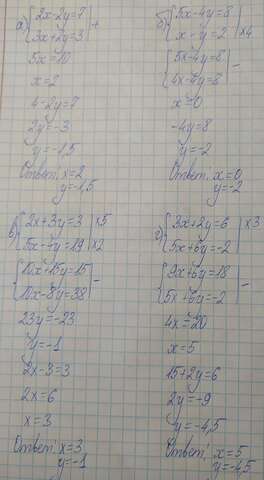 а) {2x-2y=7 | +
{3x+2y=3
5x=10
x=2
4-2y=7
2y=-3
y=-1,5
Ответ: x=2
y=-1,5
б) {5x-4y=8
x-y=2 | x4
{5x-4y=8
4x-4y=8 | -
x=0
-4y=8
y=-2
Ответ: x=0
y=-2
в) {2x+3y=3 | x5
{5x-4y=19 | x2
{10x+15y=15
10x-8y=38 | -
23y=-23
y=-1
2x-3=3
2x=6
x=3
Ответ: x=3
y=-1
г) {3x+2y=6 | x3
{5x+6y=-2
{9x+6y=18
5x+6y=-2 | -
4x=20
x=5
15+2y=6
2y=-9
y=-4,5
Ответ: x=5
y=-4,5